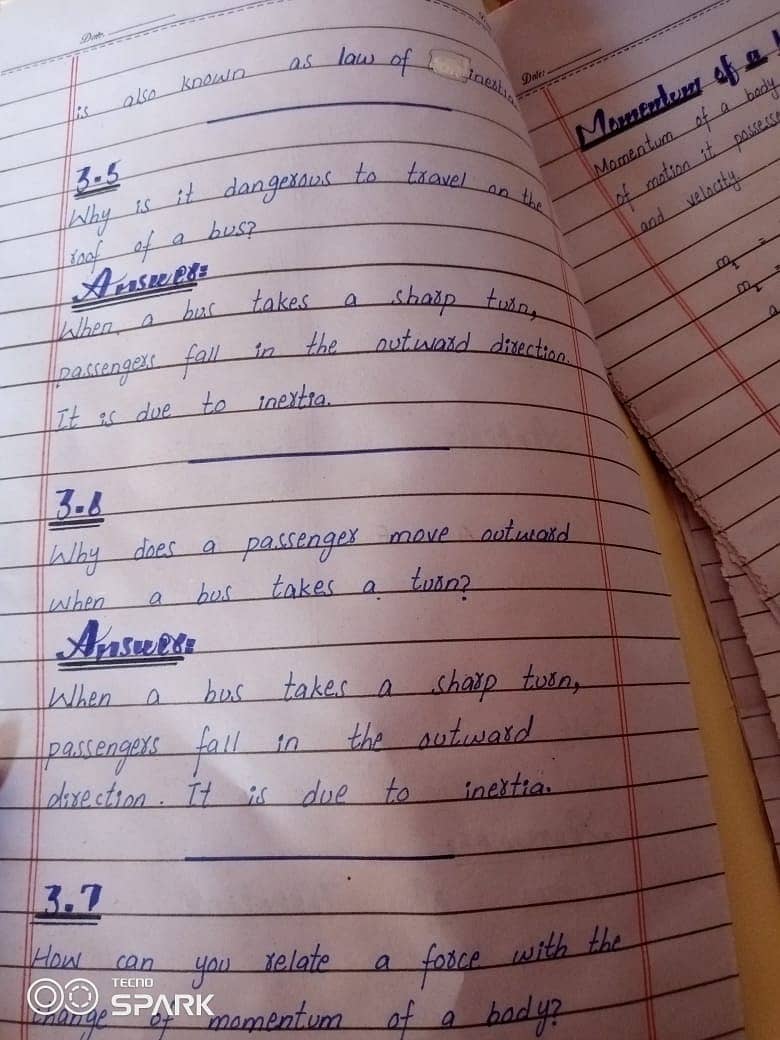 Date:
is also known as law of inertia
3.5
Why is it dangerous to travel on the
roof of a bus?
Answer:
When a bus takes a sharp turn,
passengers fall in the outward direction.
It is due to inertia.
3.6
Why does a passenger move outward
when a bus takes a turn?
Answer:
When a bus takes a sharp turn,
passengers fall in the outward
direction. It is due to inertia.
3.7
How can you relate a force with the
change of momentum of a body?
Date:
Momentum of a
Momentum of a body
of motion it possesse
and velocity
TECNO
SPARK